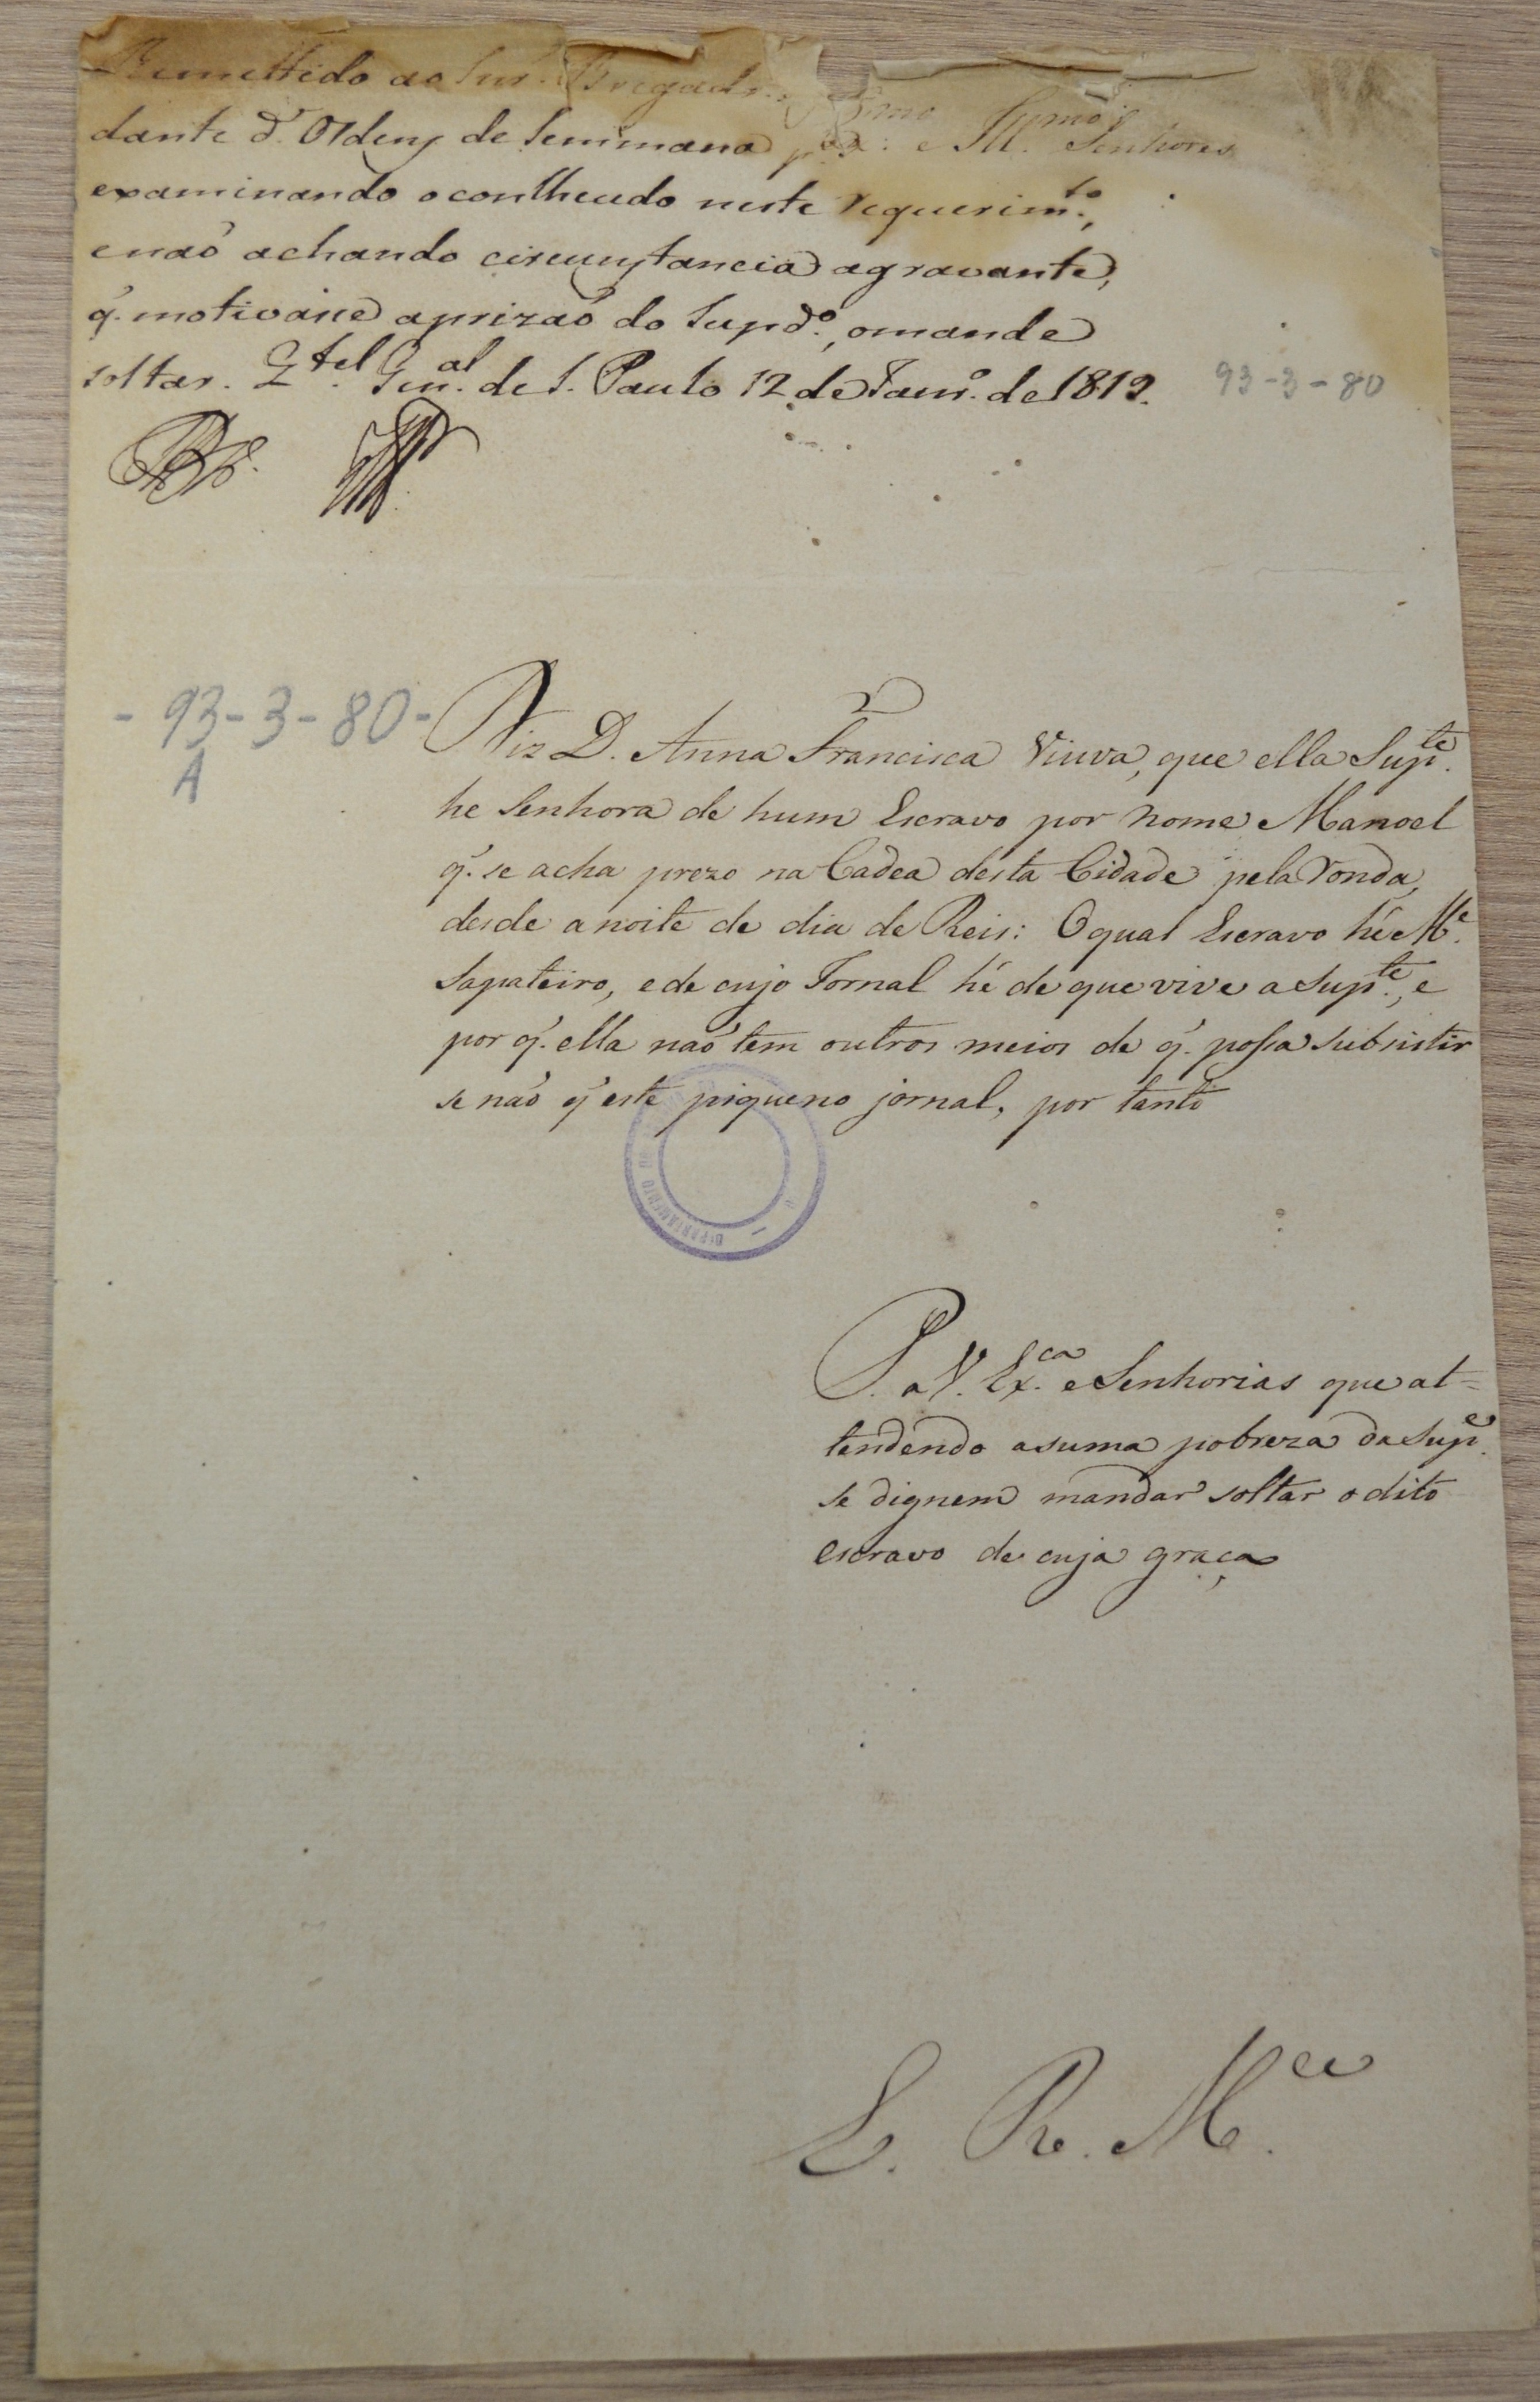 Remettido ao Snr. Brigadr.
dante d'Ordens de Semmana p.a
Exmo Illmos
e M. Senhores
examinando o contheudo neste requerim.to,
e naó achando circunstancia agravante,
q. motivasse aprizaó do Supd.o, omande
soltar. Q.tel Gen.al de S. Paulo 12 de Janr.o de 1819.
93-3-80
- 93-3-80-
A
Diz D. Anna Francisca Viuva, que ella Sup.te
he Senhora de hum Escravo por nome Manoel
q. se acha prezo na Cadea desta Cidade pela ronda,
desde a noite de dia de Reis: O qual Escravo hé M.e
Sapateiro, e de cujo Jornal hé de que vive a Sup.te, e
por q. ella naó tem outros meios de q. possa subsistir
se naó q. este piqueno jornal, por tanto
DEPARTAMENTO DO
P. a V. Ex.ca e Senhorias que at=
tendendo asuma pobreza da Sup.e
se dignem mandar soltar o dito
escravo de cuja graça
E. R. M.ce